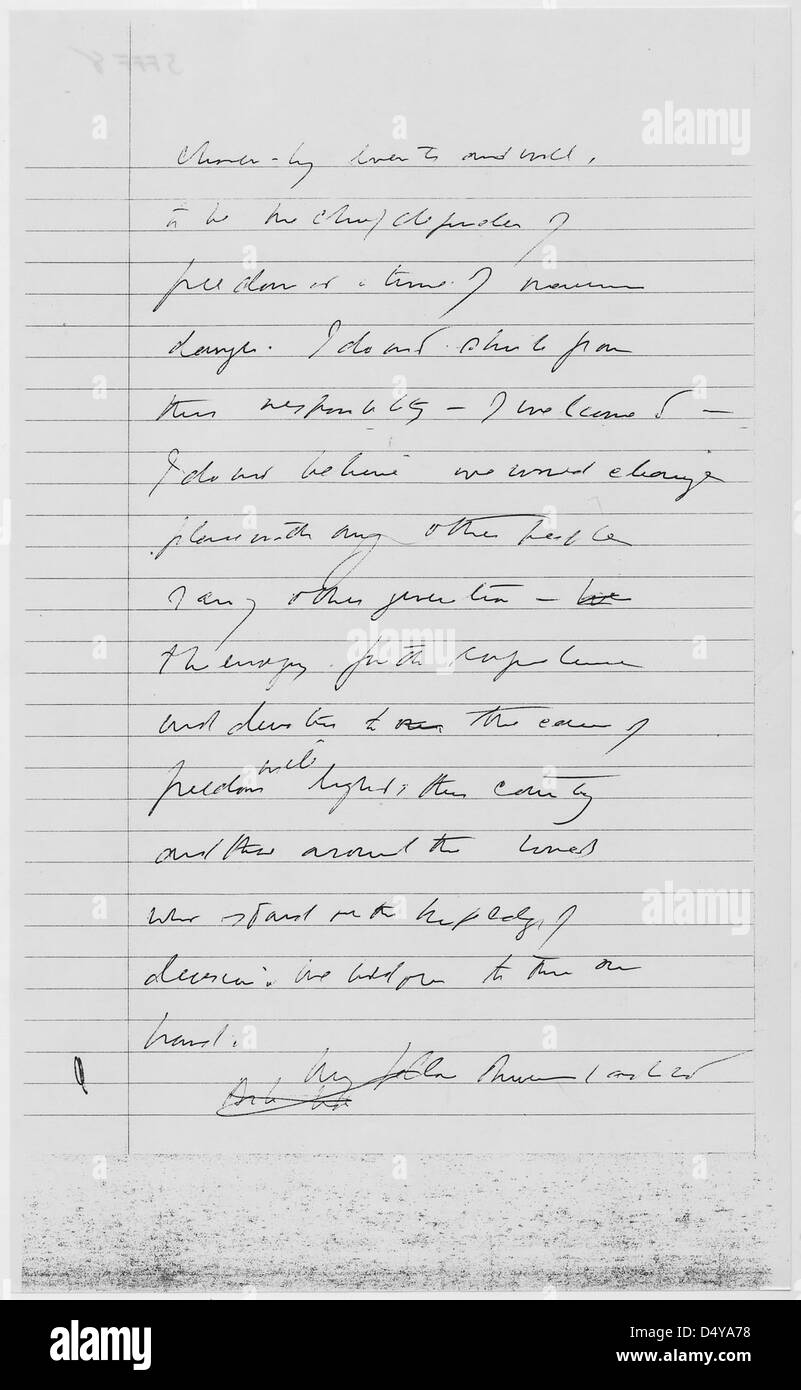 chosen - by events and will,
to be the chief defender of
freedom at a time of maximum
danger. I do not shrink from
this responsibility - I welcome it -
I do not believe we would change
places with any other people
or any other generation -
The energy - faith
and devotion to the cause of
freedom will light this country
and those around the world
who stand on the of
decision. We hold to them our
hand.
My fellow Americans ask not
alamy
a
Image ID: D4YA78
www.alamy.com